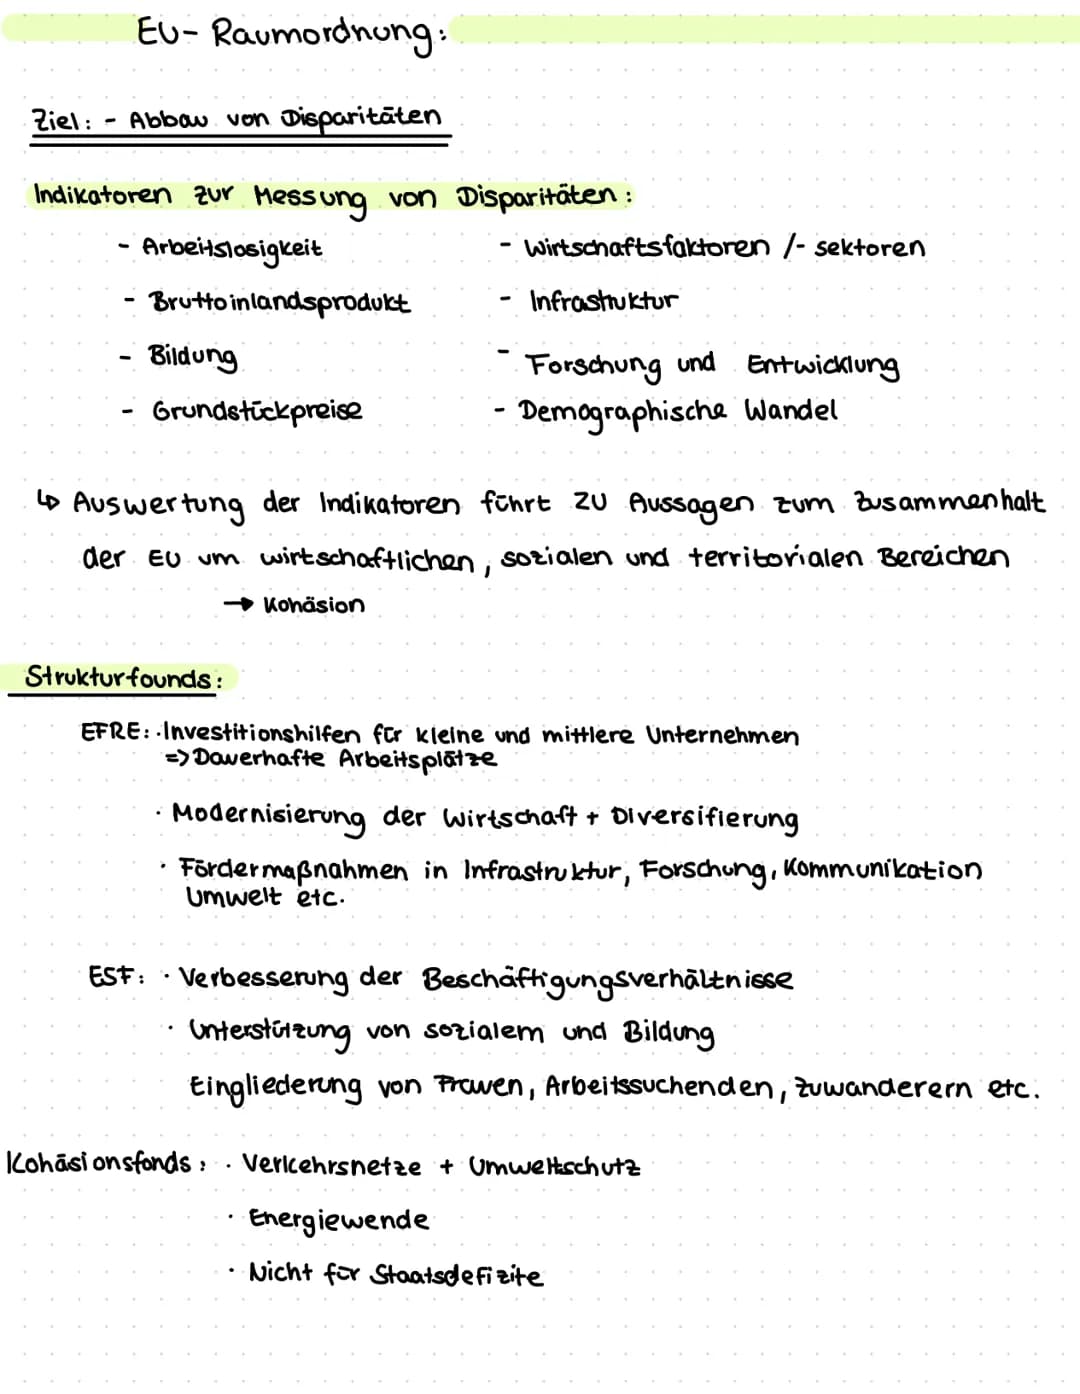 EU- Raumordnung:
Ziel: - Abbau von Disparitäten
Indikatoren zur Messung von Disparitäten:
- Arbeitslosigkeit
- Wirtschaftsfaktoren /- sektoren
- Bruttoinlandsprodukt
- Infrastruktur
- Bildung
- Forschung und Entwicklung
- Grundstückpreise
- Demographische Wandel
↳ Auswertung der Indikatoren führt zu Aussagen zum Zusammenhalt
der EU um wirtschaftlichen, sozialen und territorialen Bereichen
→ Kohäsion
Strukturfounds:
EFRE: · Investitionshilfen für kleine und mittlere Unternehmen
=> Dauerhafte Arbeitsplätze
· Modernisierung der Wirtschaft + Diversifierung
· Fördermaßnahmen in Infrastruktur, Forschung, Kommunikation
Umwelt etc.
ESF: · Verbesserung der Beschäftigungsverhältnisse
· Unterstützung von sozialem und Bildung
Eingliederung von Frauen, Arbeitssuchenden, Zuwanderern etc.
Kohäsionsfonds: · Verkehrsnetze + Umweltschutz
· Energiewende
· Nicht für Staatsdefizite